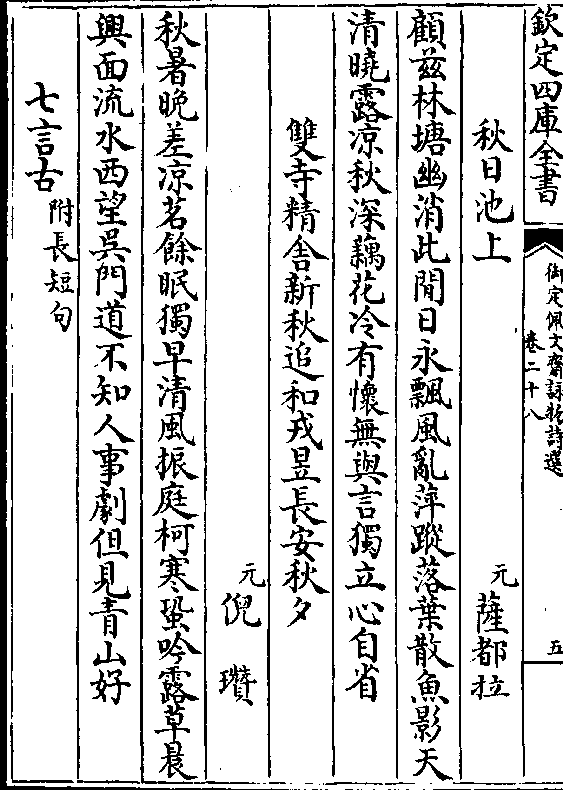 欽定四庫全書
御定佩文齋詠物詩選
卷二十八
五
秋日池上
元 薩都拉
顧兹林塘幽消此閒日永飄風亂萍蹤落葉散魚影天
清曉露凉秋深藕花冷有懷無與言獨立心自省
雙寺精舎新秋追和戎昱長安秋夕
元 倪瓚
秋暑晚差凉茗餘眠獨早清風振庭柯寒蛩吟露草晨
興面流水西望吳門道不知人事劇但見青山好
七言古附長短句